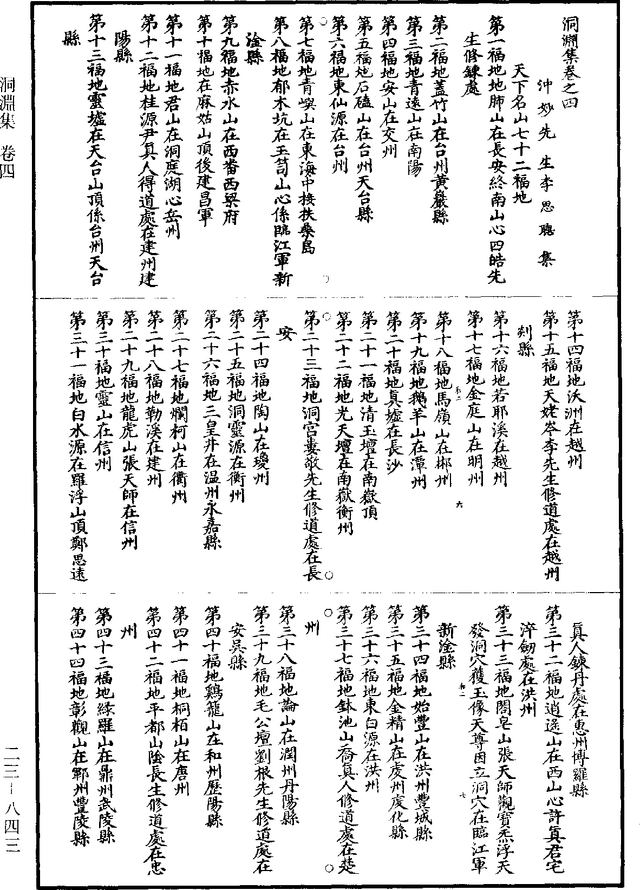 洞淵集卷之四
沖妙先生李思聰集
天下名山七十二福地
第一福地地肺山在長安終南山心四皓先
生修鍊處
第二福地蓋竹山在台州黃巖縣
第三福地青遠山在南陽
第四福地安山在交州
第五福地石磕山在台州天台縣
第六福地東仙源在台州
第七福地青嶼山在東海中接扶桑島
第八福地郁木坑在玉笥山心係臨江軍新
淦縣
第九福地赤水山在西畨西梁府
第十福地在麻姑山頂後建昌軍
第十一福地君山在洞庭湖心岳州
第十二福地桂源尹真人得道處在建州建
陽縣
第十三福地靈墟在天台山頂係台州天台
縣
第十四福地沃洲在越州
第十五福地天姥岑李先生修道處在越州
剡縣
第十六福地若耶溪在越州
第十七福地金庭山在明州
第十八福地馬嶺山在郴州
第十九福地鵝羊山在潭州
第二十福地真墟在長沙
第二十一福地清玉壇在南嶽頂
第二十二福地光天壇在南嶽衡州
第二十三福地洞宫婁敬先生修道處在長
安
第二十四福地陶山在瓊州
第二十五福地洞靈源在衡州
第二十六福地三皇井在温州永嘉縣
第二十七福地爛柯山在衢州
第二十八福地勒溪在建州
第二十九福地龍虎山張天師在信州
第三十福地靈山在信州
第三十一福地白水源在羅浮山頂鄭思遠
真人鍊丹處在惠州博羅縣
第三十二福地逍遥山在西山心許真君宅
淬劒處在洪州
第三十三福地閤皂山張天師觀寶炁浮天
發洞穴獲玉像天尊因立洞穴在臨江軍
新淦縣
第三十四福地始豐山在洪州豐城縣
第三十五福地金精山在虔州虔化縣
第三十六福地東白源在洪州
第三十七福地鉢池山喬真人修道處在楚
州
第三十八福地論山在潤州丹陽縣
第三十九福地毛公壇劉根先生修道處在
安吳縣
第四十福地鷄籠山在和州歷陽縣
第四十一福地桐栢山在唐州
第四十二福地平都山陰長生修道處在忠
州
第四十三福地綠羅山在鼎州武陵縣
第四十四福地彰觀山在鄿州豐陵縣
洞淵集 卷四
二三－八四三